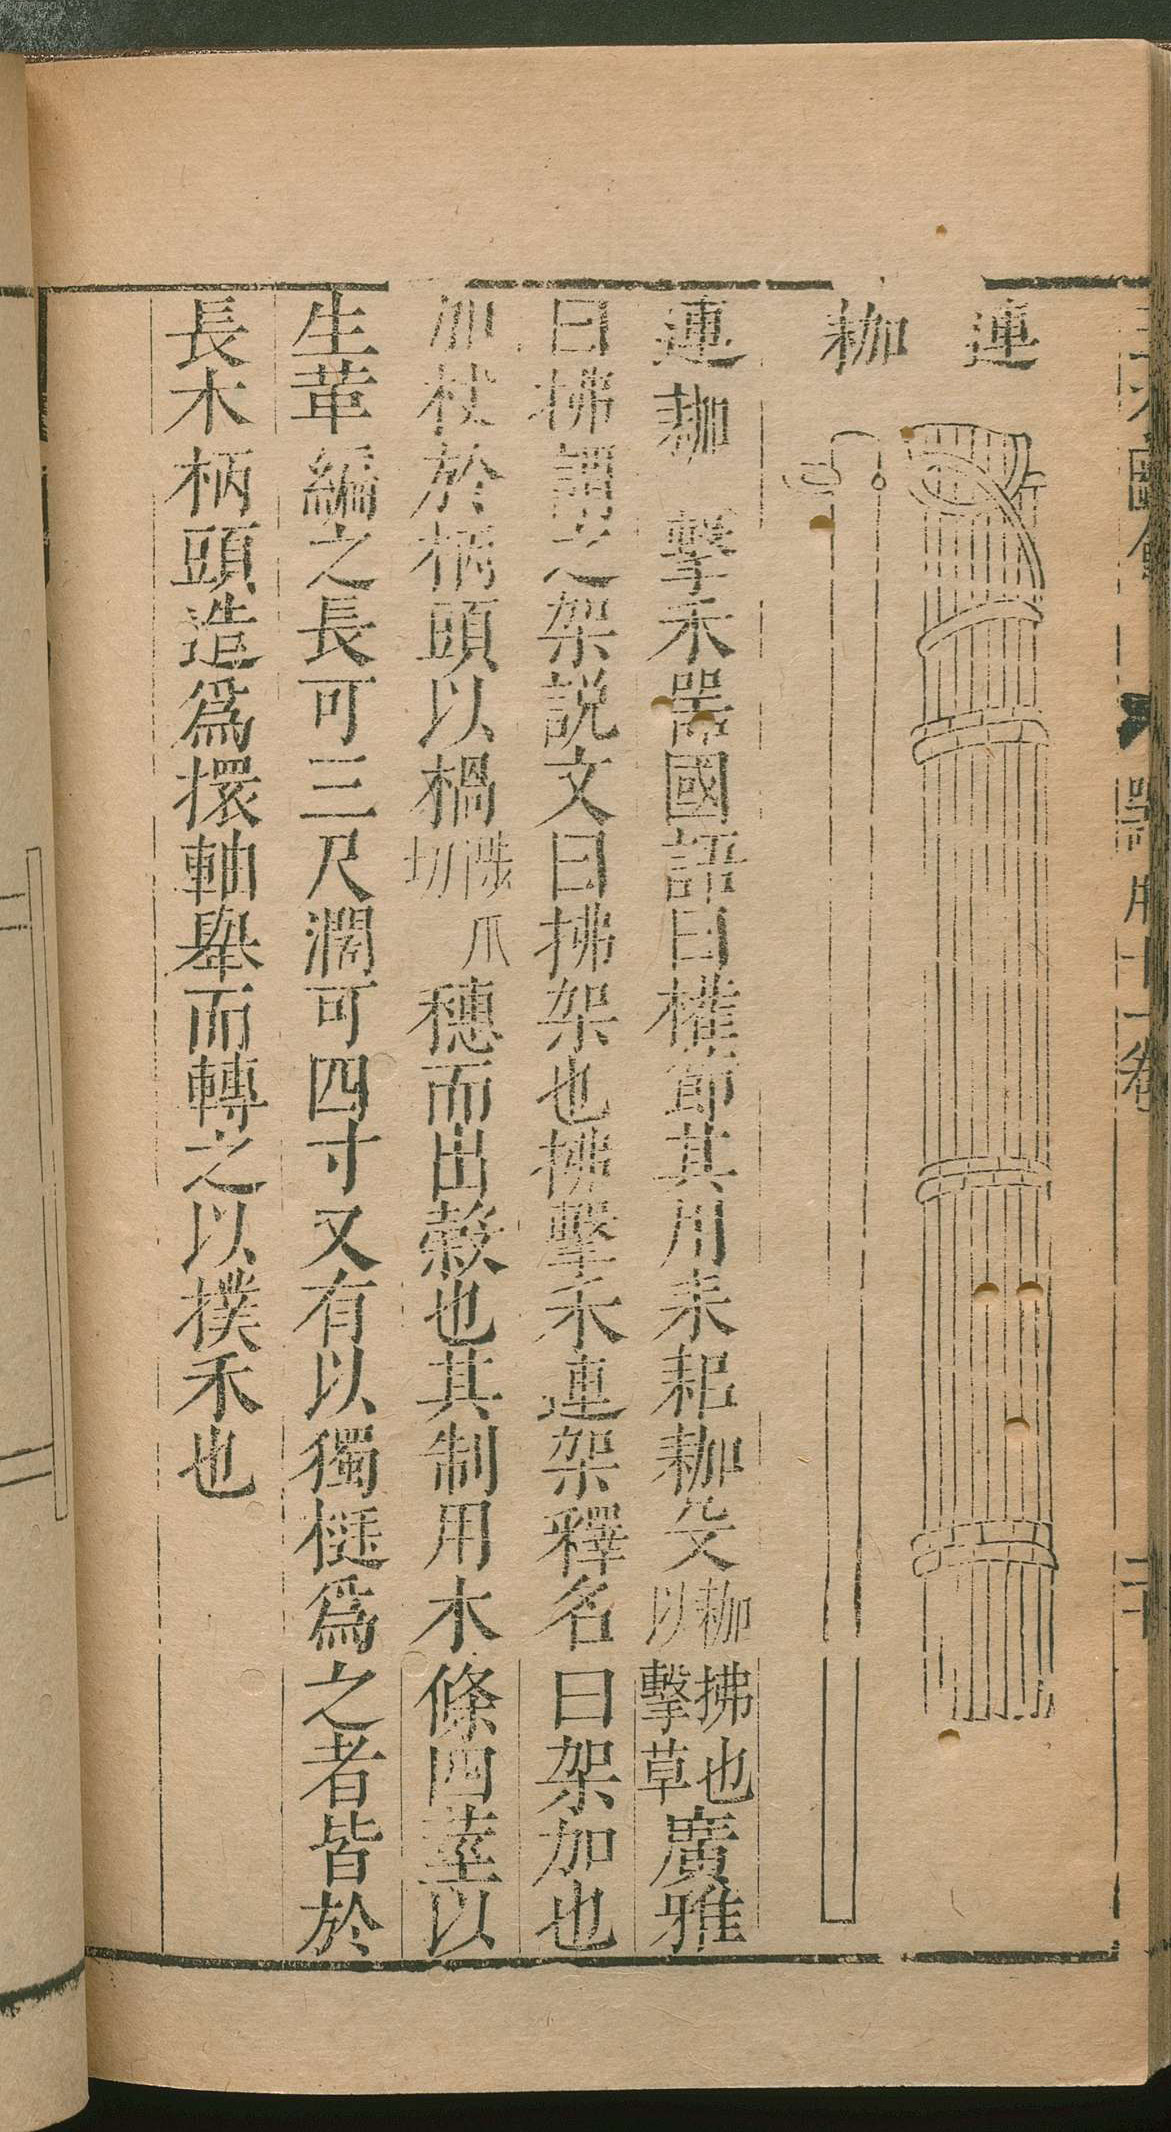 連耞
連耞 擊禾器國語曰權節其用耒耜耞殳 耞拂也以擊草 廣雅
曰拂謂之架説文曰拂架也拂擊禾連架釋名曰架加也
加杖於柄頭以檛 陟爪切 穗而出穀也其制用木條四莖以
生革編之長可三尺濶可四寸又有以獨梃爲之者皆於
長木柄頭造爲擐軸舉而轉之以撲禾也
器用十一卷